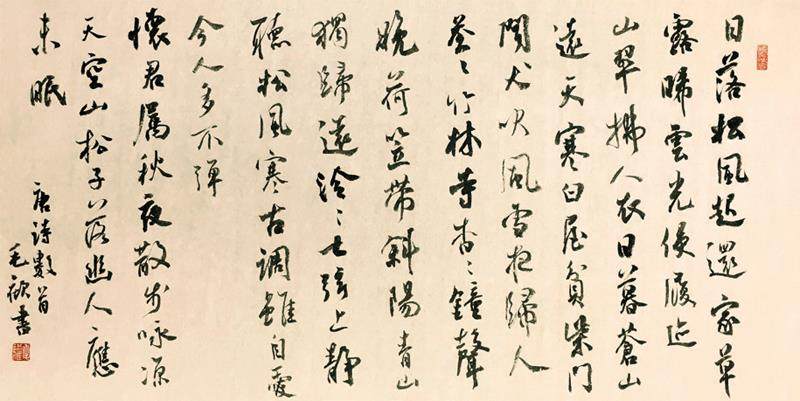 日落松風起還家草
露晞雲光侵履迹
山翠拂人衣日暮蒼山
遠天寒白屋貧柴門
聞犬吠風雪夜歸人
蒼〻竹林寺杳〻鐘聲
晚荷笠帶斜陽青山
獨歸遠泠〻七弦上靜
聽松風寒古調雖自愛
今人多不彈
懷君屬秋夜散步咏涼
天空山松子落幽人應
未眠
唐詩數首
毛書